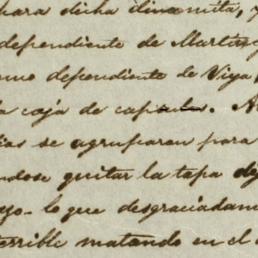 para dicha dinamita, y
dependiente de Martin
dependiente de Viya,
la caja de capsulas. A
ias se agruparon para
ndose quitar la tapa de
lo que desgraciadam
terrible matando en el